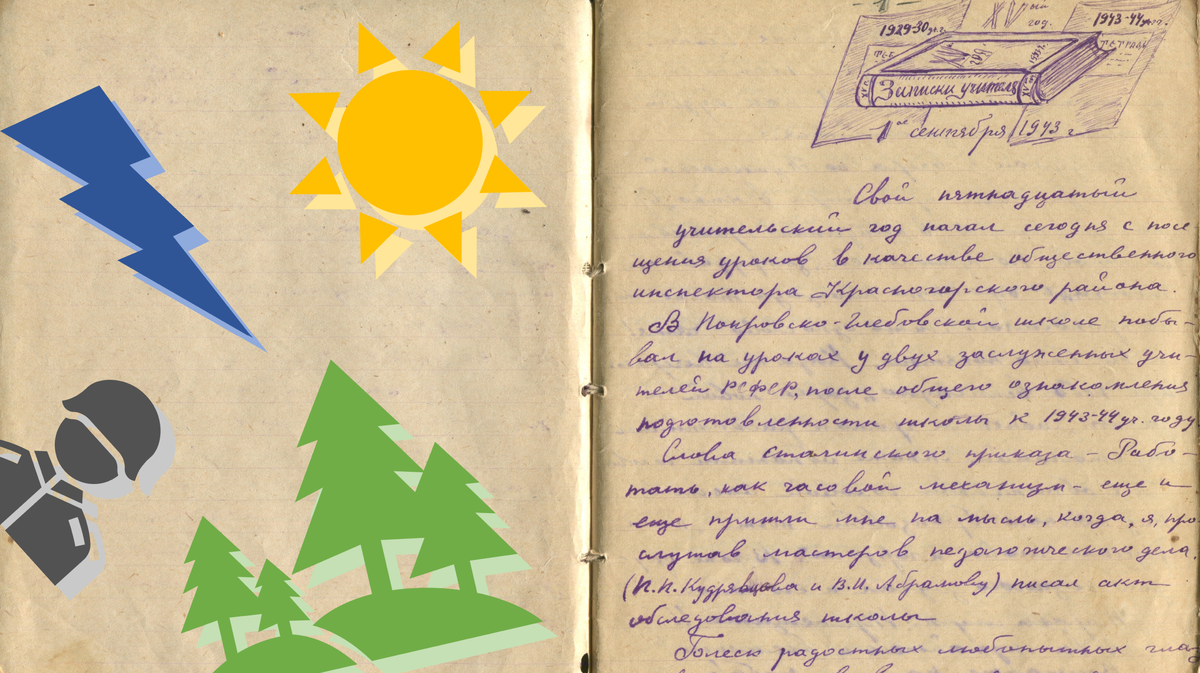 XV ый
год.
1929-30 уч.г.
1943-44 уч.г.
ТЕТРАДЬ
Записки учителя
1ое сентября 1943 г
Свой пятнадцатый
учительский год начал сегодня с посе
щения уроков в качестве общественного
инспектора Красногорского района.
В Покровско-Глебовской школе побы-
вал на уроках у двух заслуженных учи-
телей РСФСР, после общего ознакомления
подготовленности школы к 1943-44 уч. году
Слова сталинского приказа - Рабо-
тать, как часовой механизм - еще и
еще пришли мне на мысль, когда, я, про
слушав мастеров педагогического дела,
(П.П. Кудрявцова и В.И. Абрамову) писал акт
обследования школы
радостных любопытных гла